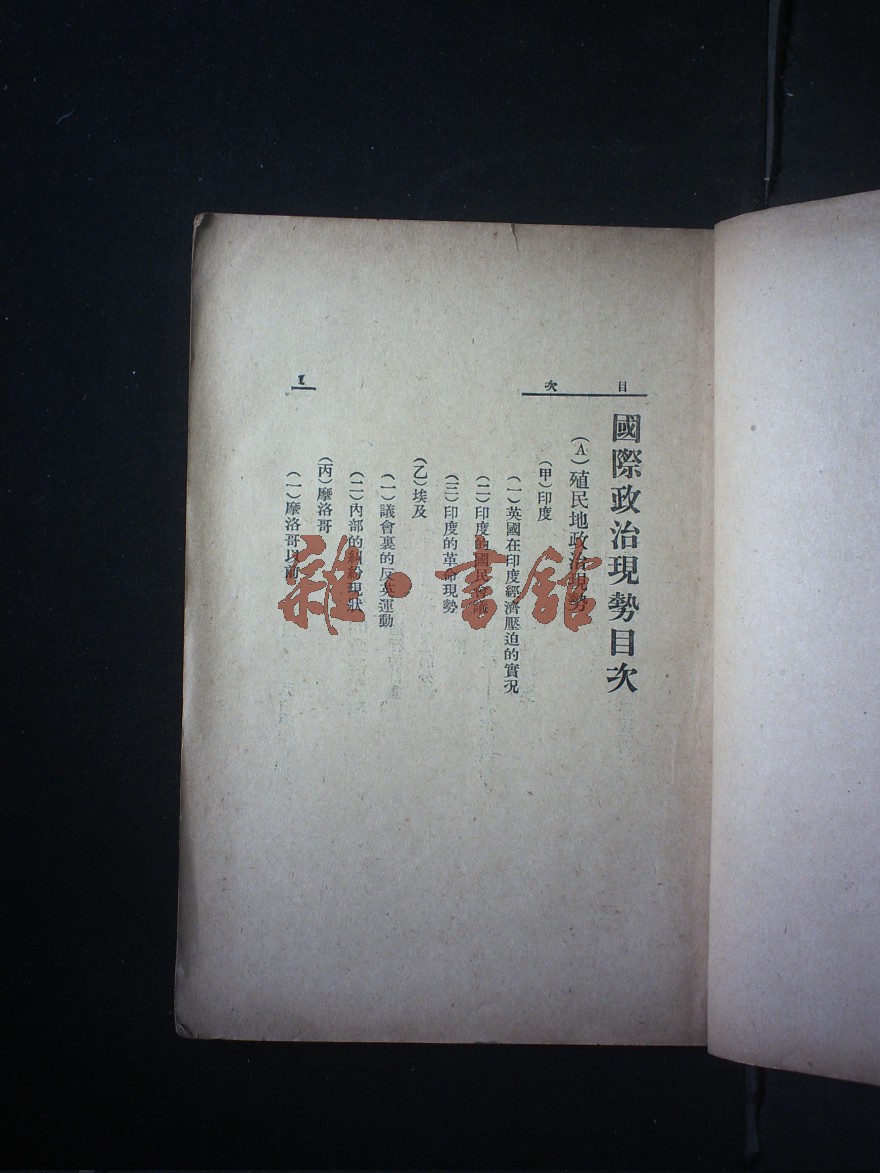 目次
國際政治現勢目次
(A)殖民地政治現勢
(甲)印度
(一)英國在印度經濟壓迫的實況
(二)印度的國民會議
(三)印度的革命現勢
(乙)埃及
(一)議會裏的反英運動
(二)內部的糾紛現狀
(丙)摩洛哥
(一)摩洛哥以前
1
雜·書館